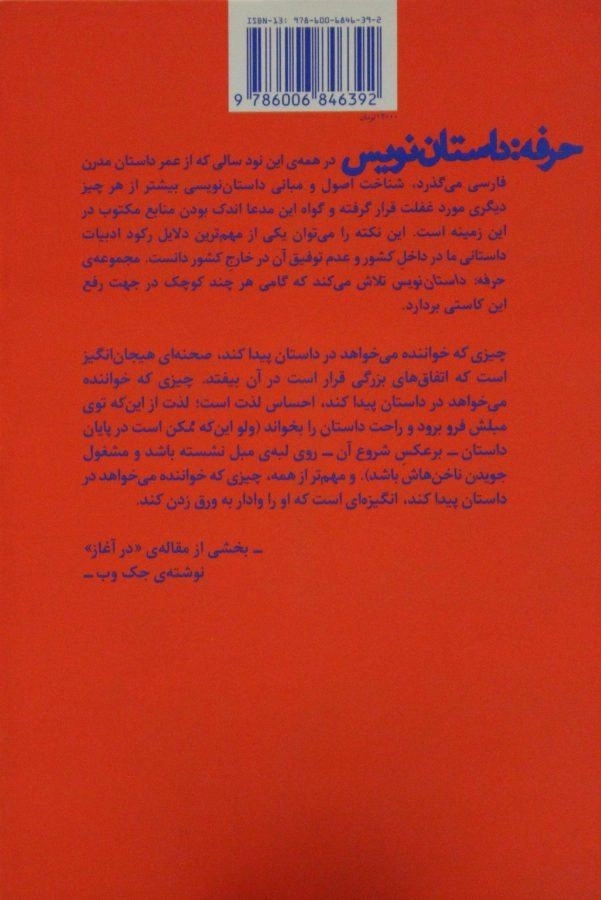 ISBN-13: 978-600-6846-39-2
9 786006 846392
۱۲۰۰۰ تومان
حرفه: داستان‌نویس در همه‌ی این نود سالی که از عمر داستان مدرن
فارسی می‌گذرد، شناخت اصول و مبانی داستان‌نویسی بیشتر از هر چیز
دیگری مورد غفلت قرار گرفته و گواه این مدعا اندک بودن منابع مکتوب در
این زمینه است. این نکته را می‌توان یکی از مهم‌ترین دلایل رکود ادبیات
داستانی ما در داخلِ کشور و عدم توفیق آن در خارجِ کشور دانست. مجموعه‌ی
حرفه: داستان‌نویس تلاش می‌کند که گامی هر چند کوچک در جهت رفع
این کاستی بردارد.
چیزی که خواننده می‌خواهد در داستان پیدا کند، صحنه‌ای هیجان‌انگیز
است که اتفاق‌های بزرگی قرار است در آن بیفتد. چیزی که خواننده
می‌خواهد در داستان پیدا کند، احساس لذت است؛ لذت از این‌که توی
مبلش فرو برود و راحت داستان را بخواند (ولو این‌که ممکن است در پایان
داستان ــ برعکسِ شروع آن ــ روی لبه‌ی مبل نشسته باشد و مشغول
جویدن ناخن‌هاش باشد). و مهم‌تر از همه، چیزی که خواننده می‌خواهد در
داستان پیدا کند، انگیزه‌ای است که او را وادار به ورق زدن کند.
ــ بخشی از مقاله‌ی «در آغاز»
نوشته‌ی جک وب ــ